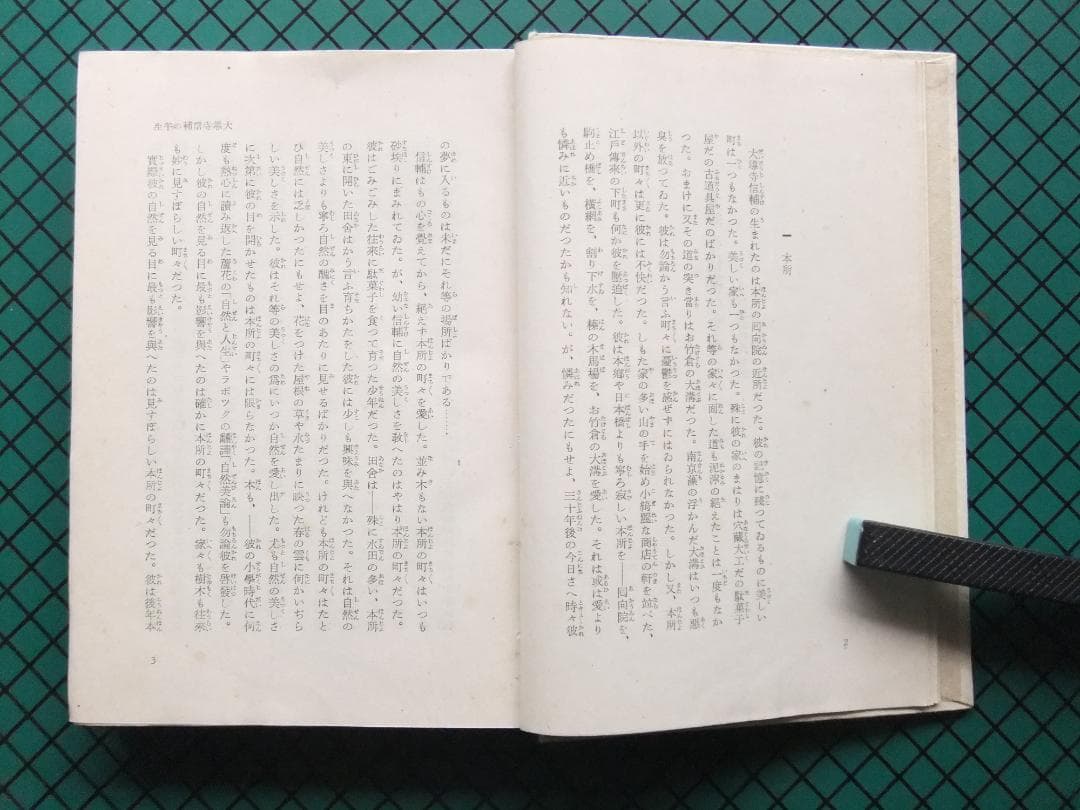 一 本所
大導寺信輔の生まれたのは本所の回向院の近所だつた。彼の記憶に殘つてゐるものに美しい
町は一つもなかつた。美しい家も一つもなかつた。殊に彼の家のまはりは穴藏大工だの駄菓子
屋だの古道具屋だのばかりだつた。それ等の家々に面した道も泥濘の絶えたことは一度もなか
つた。おまけに又その道の突き當りはお竹倉の大溝だつた。南京藻の浮かんだ大溝はいつも惡
臭を放つてゐた。彼は勿論かう言ふ町々に憂鬱を感ぜずにはゐられなかつた。しかし又、本所
以外の町々は更に彼には不快だつた。しもた家の多い山の手を始め小綺麗な商店の軒を並べた、
江戸傳來の下町も何か彼を壓迫した。彼は本郷や日本橋よりも寧ろ寂しい本所を――回向院を、
駒止め橋を、横網を、割り下水を、榛の木馬場を、お竹倉の大溝を愛した。それは或は愛より
も憐みに近いものだつたかも知れない。が、憐みだつたにもせよ、三十年後の今日さへ時々彼
2
の夢に入るものは未だにそれ等の場所ばかりである……
信輔はもの心を覺えてから、絶えず本所の町々を愛した。並み木もない本所の町々はいつも
砂埃りにまみれてゐた。が、幼い信輔に自然の美しさを教へたのはやはり本所の町々だつた。
彼はごみごみした往來に駄菓子を食つて育つた少年だつた。田舍は――殊に水田の多い、本所
の東に開いた田舍はかう言ふ育ちかたをした彼には少しも興味を與へなかつた。それは自然の
美しさよりも寧ろ自然の醜さを目のあたりに見せるばかりだつた。けれども本所の町々はたと
ひ自然には乏しかつたにもせよ、花をつけた屋根の草や水たまりに映つた春の雲に何かいぢら
しい美しさを示した。彼はそれ等の美しさの爲にいつか自然を愛し出した。尤も自然の美しさ
に次第に彼の目を開かせたものは本所の町々には限らなかつた。本も、――彼の小學時代に何
度も熱心に讀み返した蘆花の「自然と人生」やラボックの飜譯「自然美論」も勿論彼を啓發した。
しかし彼の自然を見る目に最も影響を與へたのは確かに本所の町々だつた。家々も樹木も往來
も妙に見すぼらしい町々だつた。
實際彼の自然を見る目に最も影響を與へたのは見すぼらしい本所の町々だつた。彼は後年本
大導寺信輔の半生
3